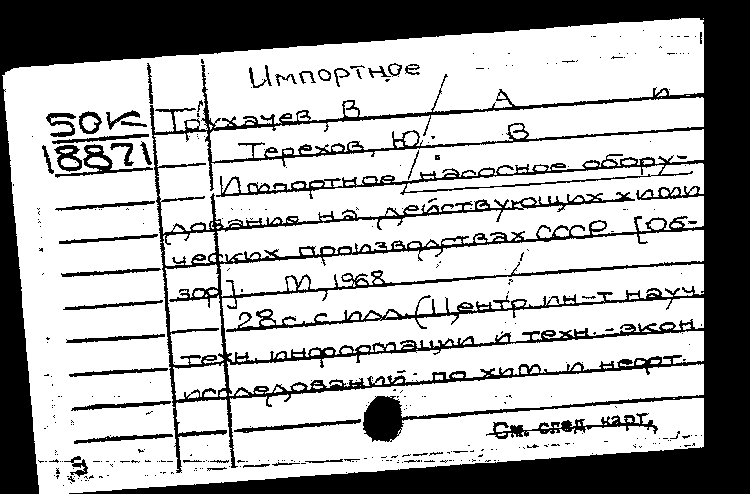 Импортное
50К Трухачев, В А и
18871 Терехов, Ю. В
Импортное насосное обору-
дование на действующих хими
ческих производствах СССР. [Об-
зор]. М, 1968
28с. с илл. (Центр. ин-т науч.
техн. информации и техн.-экон.
исследований по хим. и нефт.
См. след. карт.